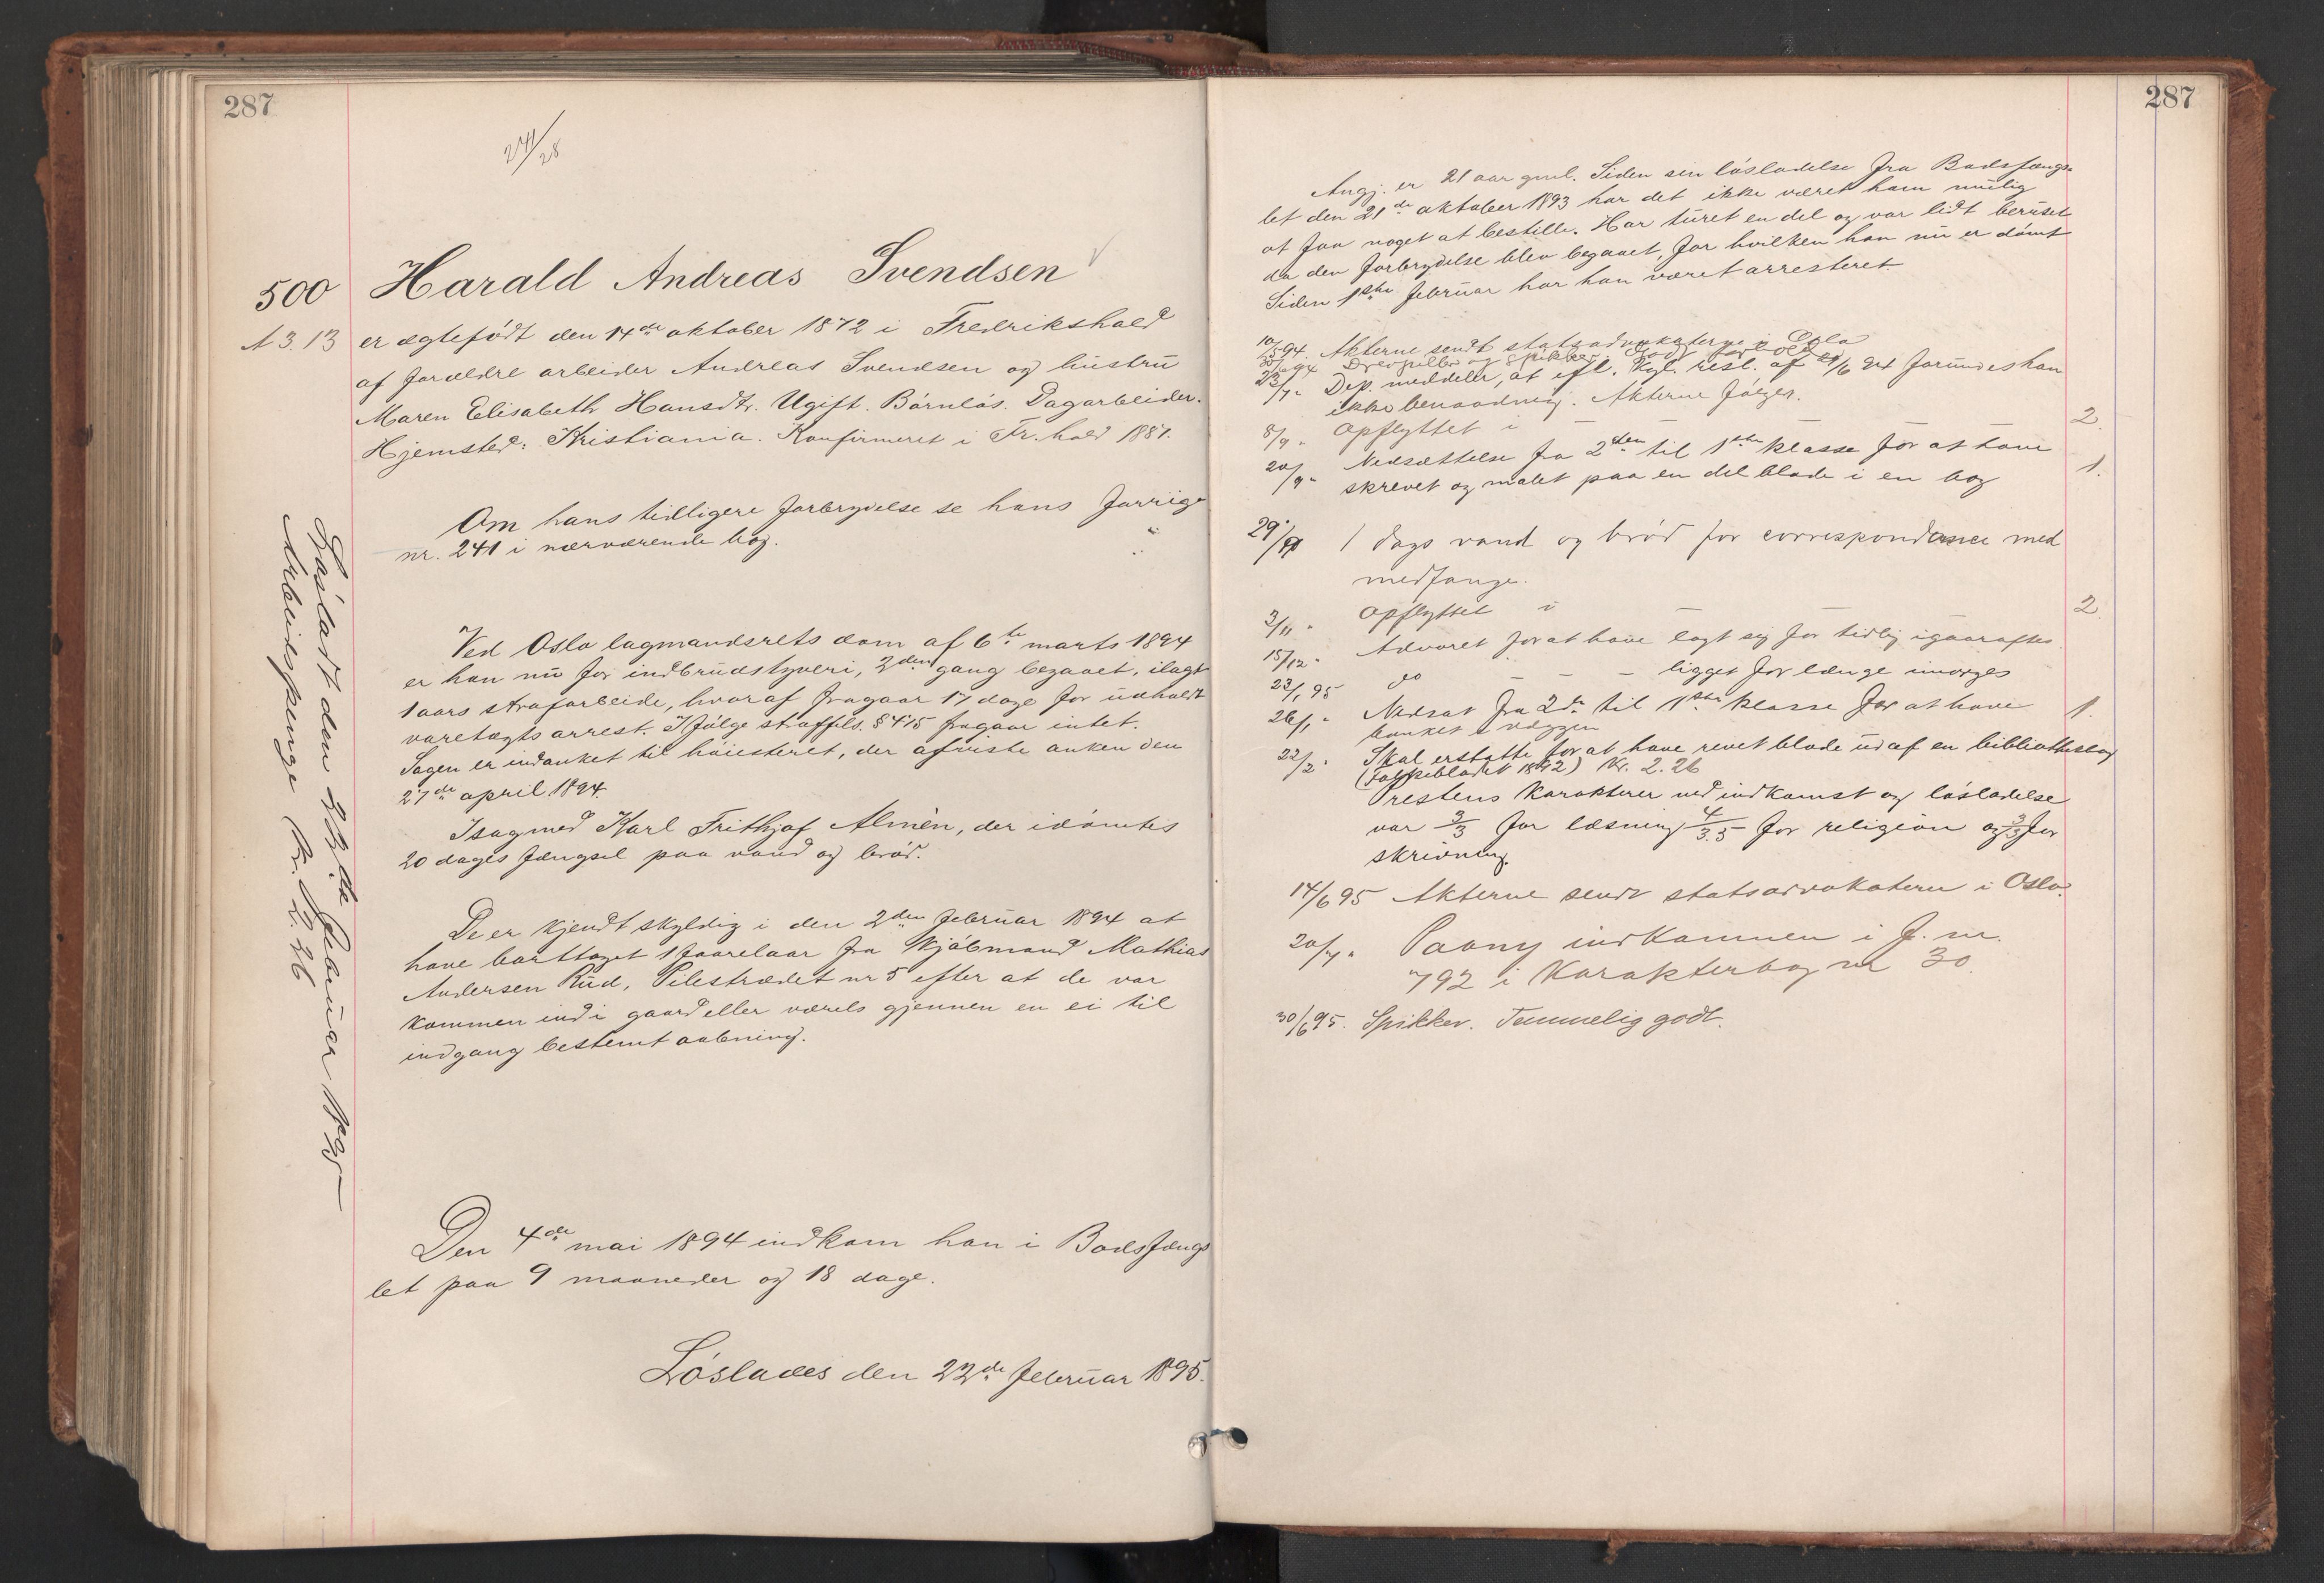 287
241/28
500 Harald Andreas Svendsen
A 3. 13 er ægtefødt den 14de oktober 1872 i Fredrikshald
af forældre arbeider Andreas Svendsen og hustru
Maren Elisabeth Hansdtr. Ugift. Børnløs. Dagarbeider.
Hjemsted: Kristiania. Konfirmeret i Fr.hald 1887.
Om hans tidligere forbrydelse se hans forrige
nr. 241 i nærværende bog.
Ved Oslo lagmandsrets dom af 6te marts 1894
er han nu for indbrudstyveri, 2den gang begaaet, ilagt
1 aars strafarbeide, hvoraf fragaar 17 dage for udholdt
varetægtsarrest. Ifølge straffels. § 415 fragaar intet.
Sagen er indanket til høiesteret, der afviste anken den
27de april 1894.
Isag med Karl Frithjof Almèn, der idømtes
20 dages fængsel paa vand og brød.
De er kjendt skyldig i den 2den februar 1894 at
have borttaget 1 faarelaar fra kjøbmand Mathias
Andersen Rud, Pilestrædet nr 5 efter at de var
kommen ind i gaard eller værels gjennem en ei til
indgang bestemt aabning.
Den 4de mai 1894 indkom han i Bodsfængs
let paa 9 maaneder og 18 dage.
Løslades den 22de februar 1895.
Løsladt den 22de februar 1895
Arbeidspenge Kr. 2.26
287
Angj. er 21 aar gml. Siden sin løsladelse fra Bodsfængs-
let den 21de oktober 1893 har det ikke været ham mulig
at faa noget at bestille. Har turet en del og var lidt beruset
da den forbrydelse blev begaaet, for hvilken han nu er dømt
Siden 1ste februar har han været arresteret.
10/5 94. Akterne sendt statsadvokaterne i Oslo
30/6 94 og spikker. Godt
23/7 " Dep. meddeler, at efl. kgl. resl. af /6 94 forundes han
ikke benaadning. Akterne følger.
8/9 " Opflyttet i — — — 2.
20/9 " Nedsættelse fra 2den til 1ste klasse for at have
skrevet og malet paa en del blade i en bog 1.
29/9 1 dags vand og brød for correspondance med
medfange.
2/11 " Opflyttet i — — 2
15/12 " Advaret for at have lagt sig for tidlig igaaraftes
23/1 95 do — — — ligget for længe imorges
26/1 " Nedsat fra 2den til 1ste klasse for at have 1.
banket i væggen
22/2 " Skal erstatte for at have revet blade ud af en bibliotheksbog
(Folkebladet 1892) Kr. 2.26
Prestens karakterer ved indkomst og løsladelse
var 3/3 for læsning 4/3.5 for religion og 3/3 for
skrivning.
14/6 95 Akterne sendt statsadvokaterne i Oslo.
20/7 " Paany indkommen i f. nr.
792 i Karakterbog nr 30.
30/6 95. Spikker. Temmelig godt.